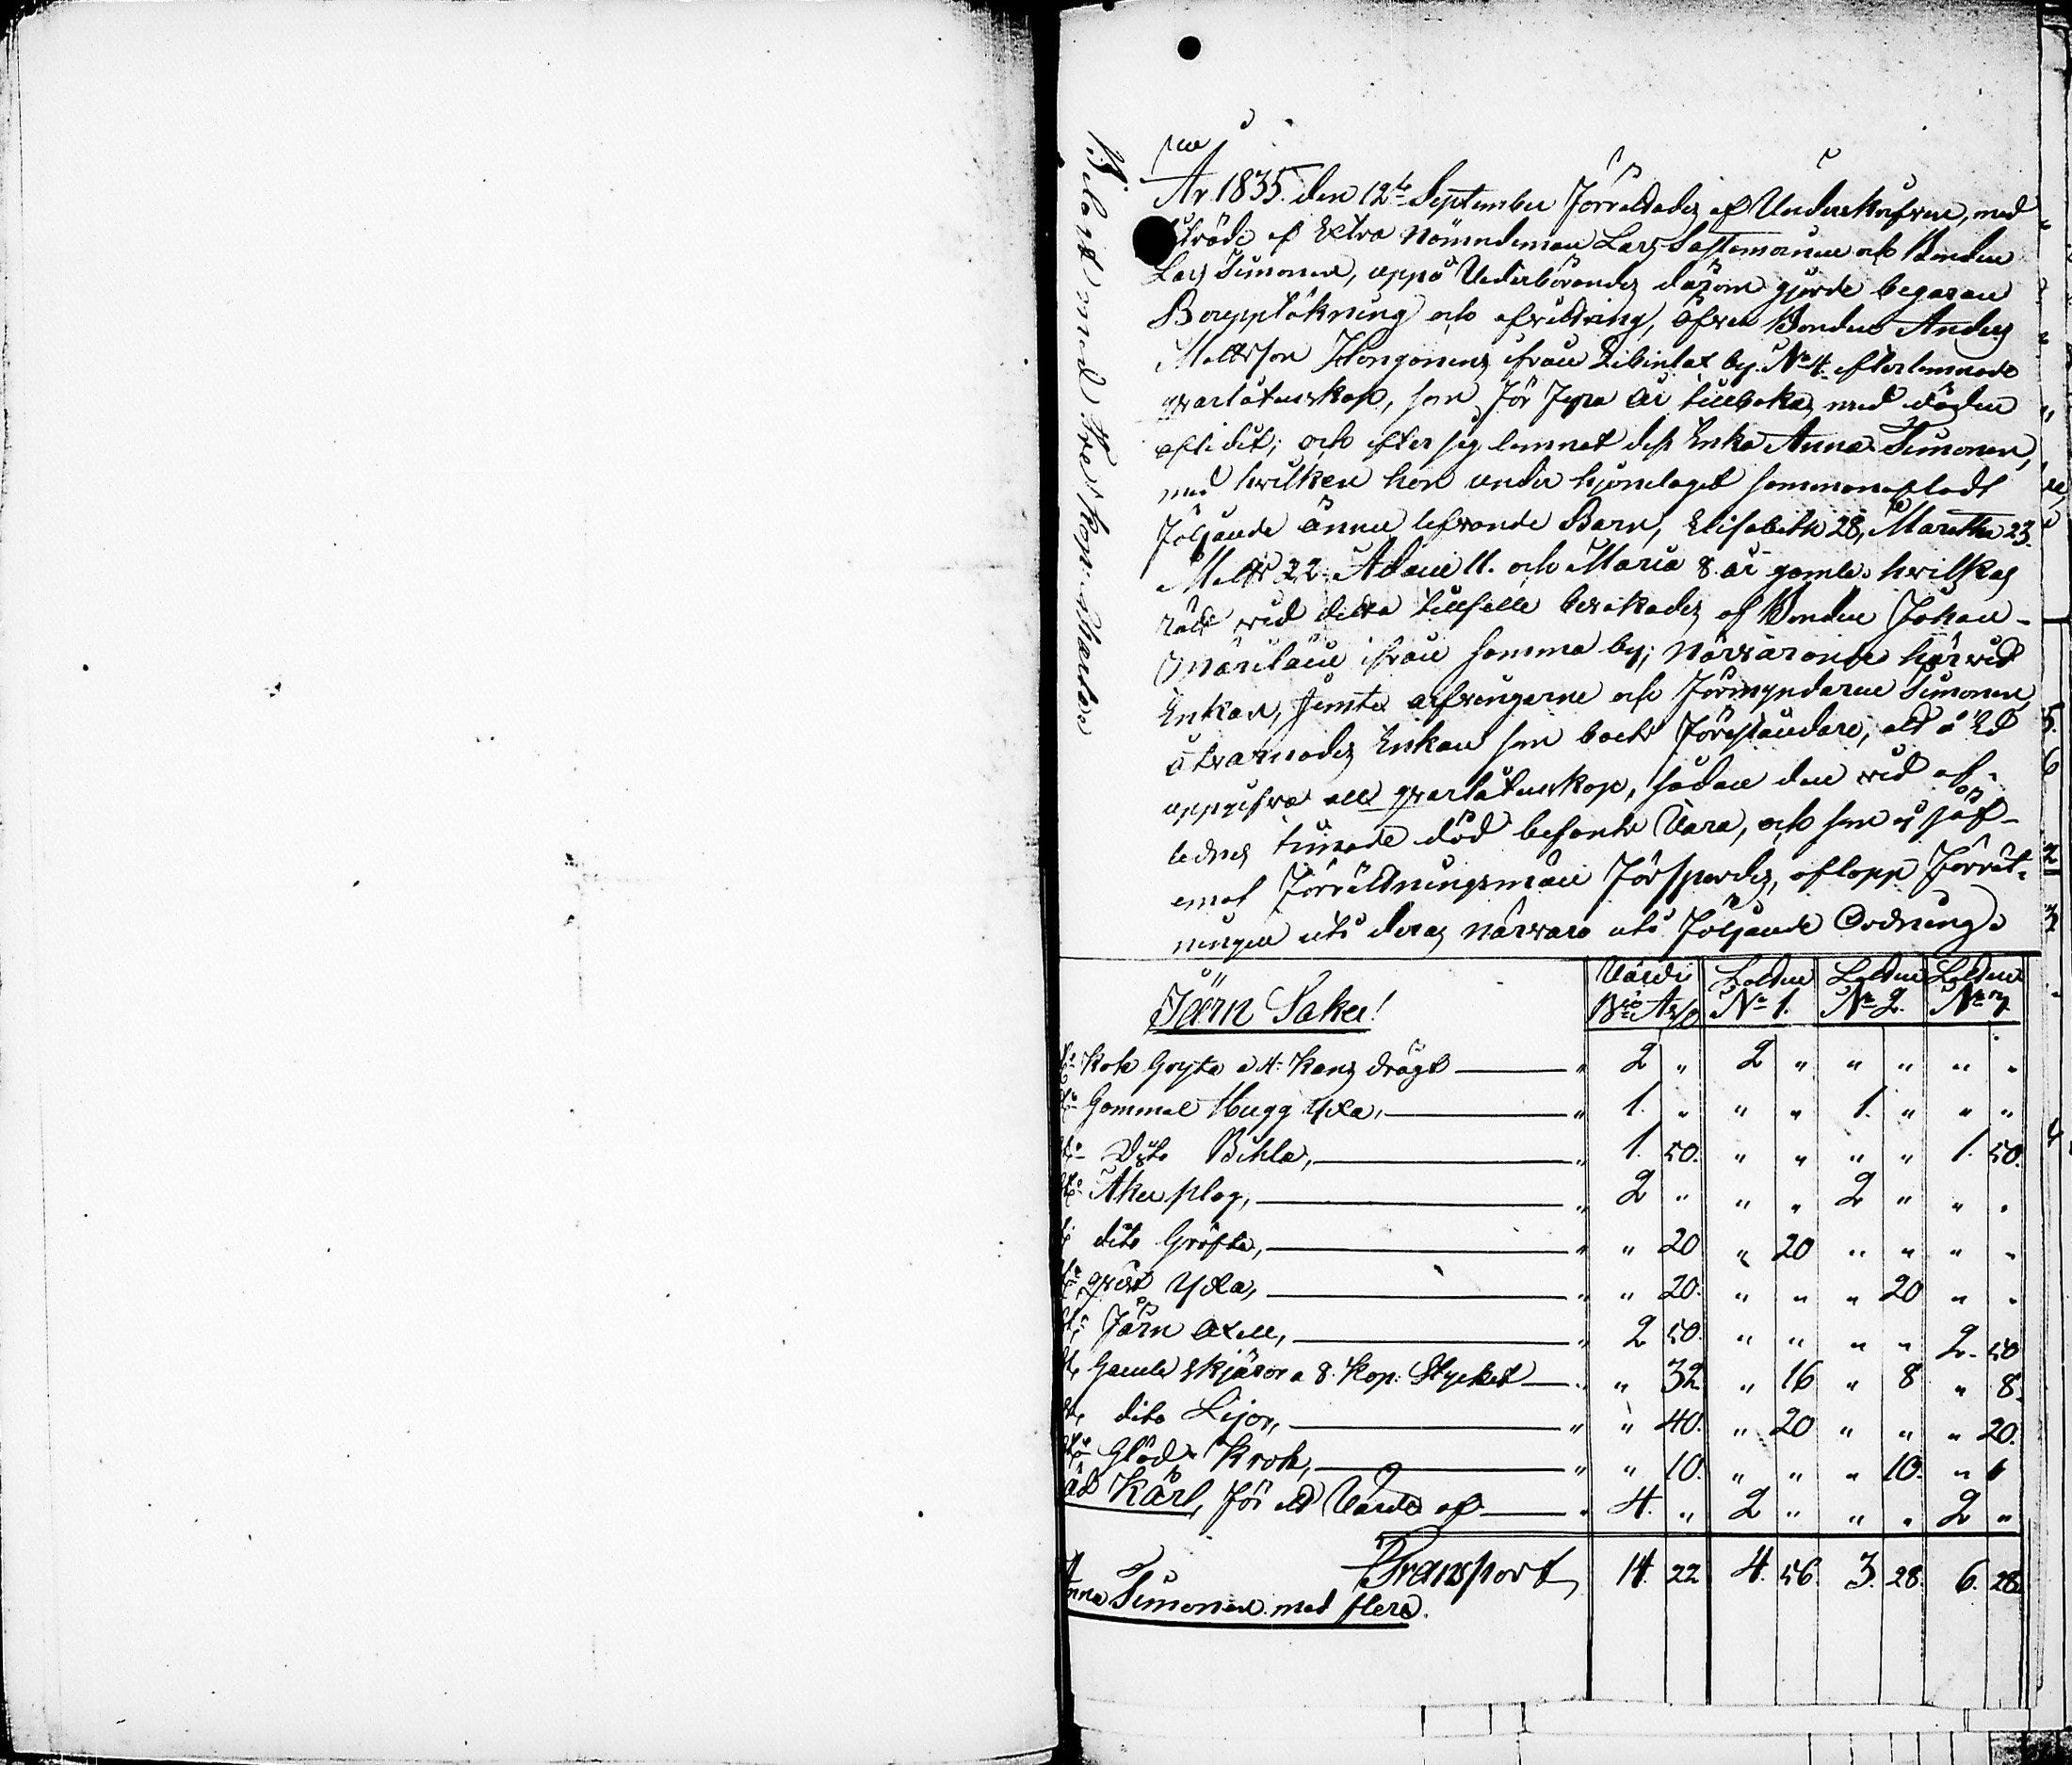 Belagd med Tre Kop: Charta
År 1835. den 12te September Förrettades af Underskrifven, med
biträde af Extra Nämndeman Lars Sastamoinen och Bonden
Lars Timonen, uppå Vederbörandes därom gjorde begäran
Bouppteckning och afvittring, öfver Bonden Anders
Matts son Hongonens ifrån by No 4. efterlemnade
qvarlåtenskap, som för fyra år tillbaka, med döden
aflidit; och efter sig lemnat dess Enka Anna Timonen,
med hvilken han under hjonelaget sammanafladt
följande ännu lefvande Barn, Elisabeth 28, Maretha 23.
Matts 22. Adam 11. och Maria 8. år gamla. hvilkas
rätt vid detta tillfälle bevakades af Bonden Johan
ifrån samma by; närvarande härvid
Enkan, jemte arfvingarne och Förmyndaren Timonen,
åtvarnades Enkan som boets Föreståndare, att å Ed
uppgifva all qvarlåtenskap, sådan den vid af-
lednes timade död befants Vara, och som ej jäf
emot Förrättningsmän försports, aflopp Förrät-
ningen uti deras närvaro uti följande Ordning.
Järn Saker! Värde Bco Ass Lotten No 1. Lotten No 2. Lotten No 3.
Kok Gryta a 4. Kans drägt " 2 " 2 " " " " "
Gammal Hugg Yxa, " 1. " " " 1. " " "
Dito Bihla, " 1. 50. " " " " 1. 50.
Åker plog, " 2 " " " 2 " " "
dito Gröfta, " " 20 " 20 " " " "
qvist Yxa, " " 20. " " " 20 " "
Järn Axell, " 2 50. " " " " 2. 50
Gamla skjäror a 8. Kop. Stycket " " 32 " 16 " 8 " 8.
dito Lijor, " " 40. " 20 " " " 20.
Glöd Krok, " " 10. " " " 10. " "
Träd Kärl, för ett Värde af " 4. " 2 " " " 2 "
Transport 14. 22 4. 56. 3. 28. 6. 28.
Anna Timonen med flera.